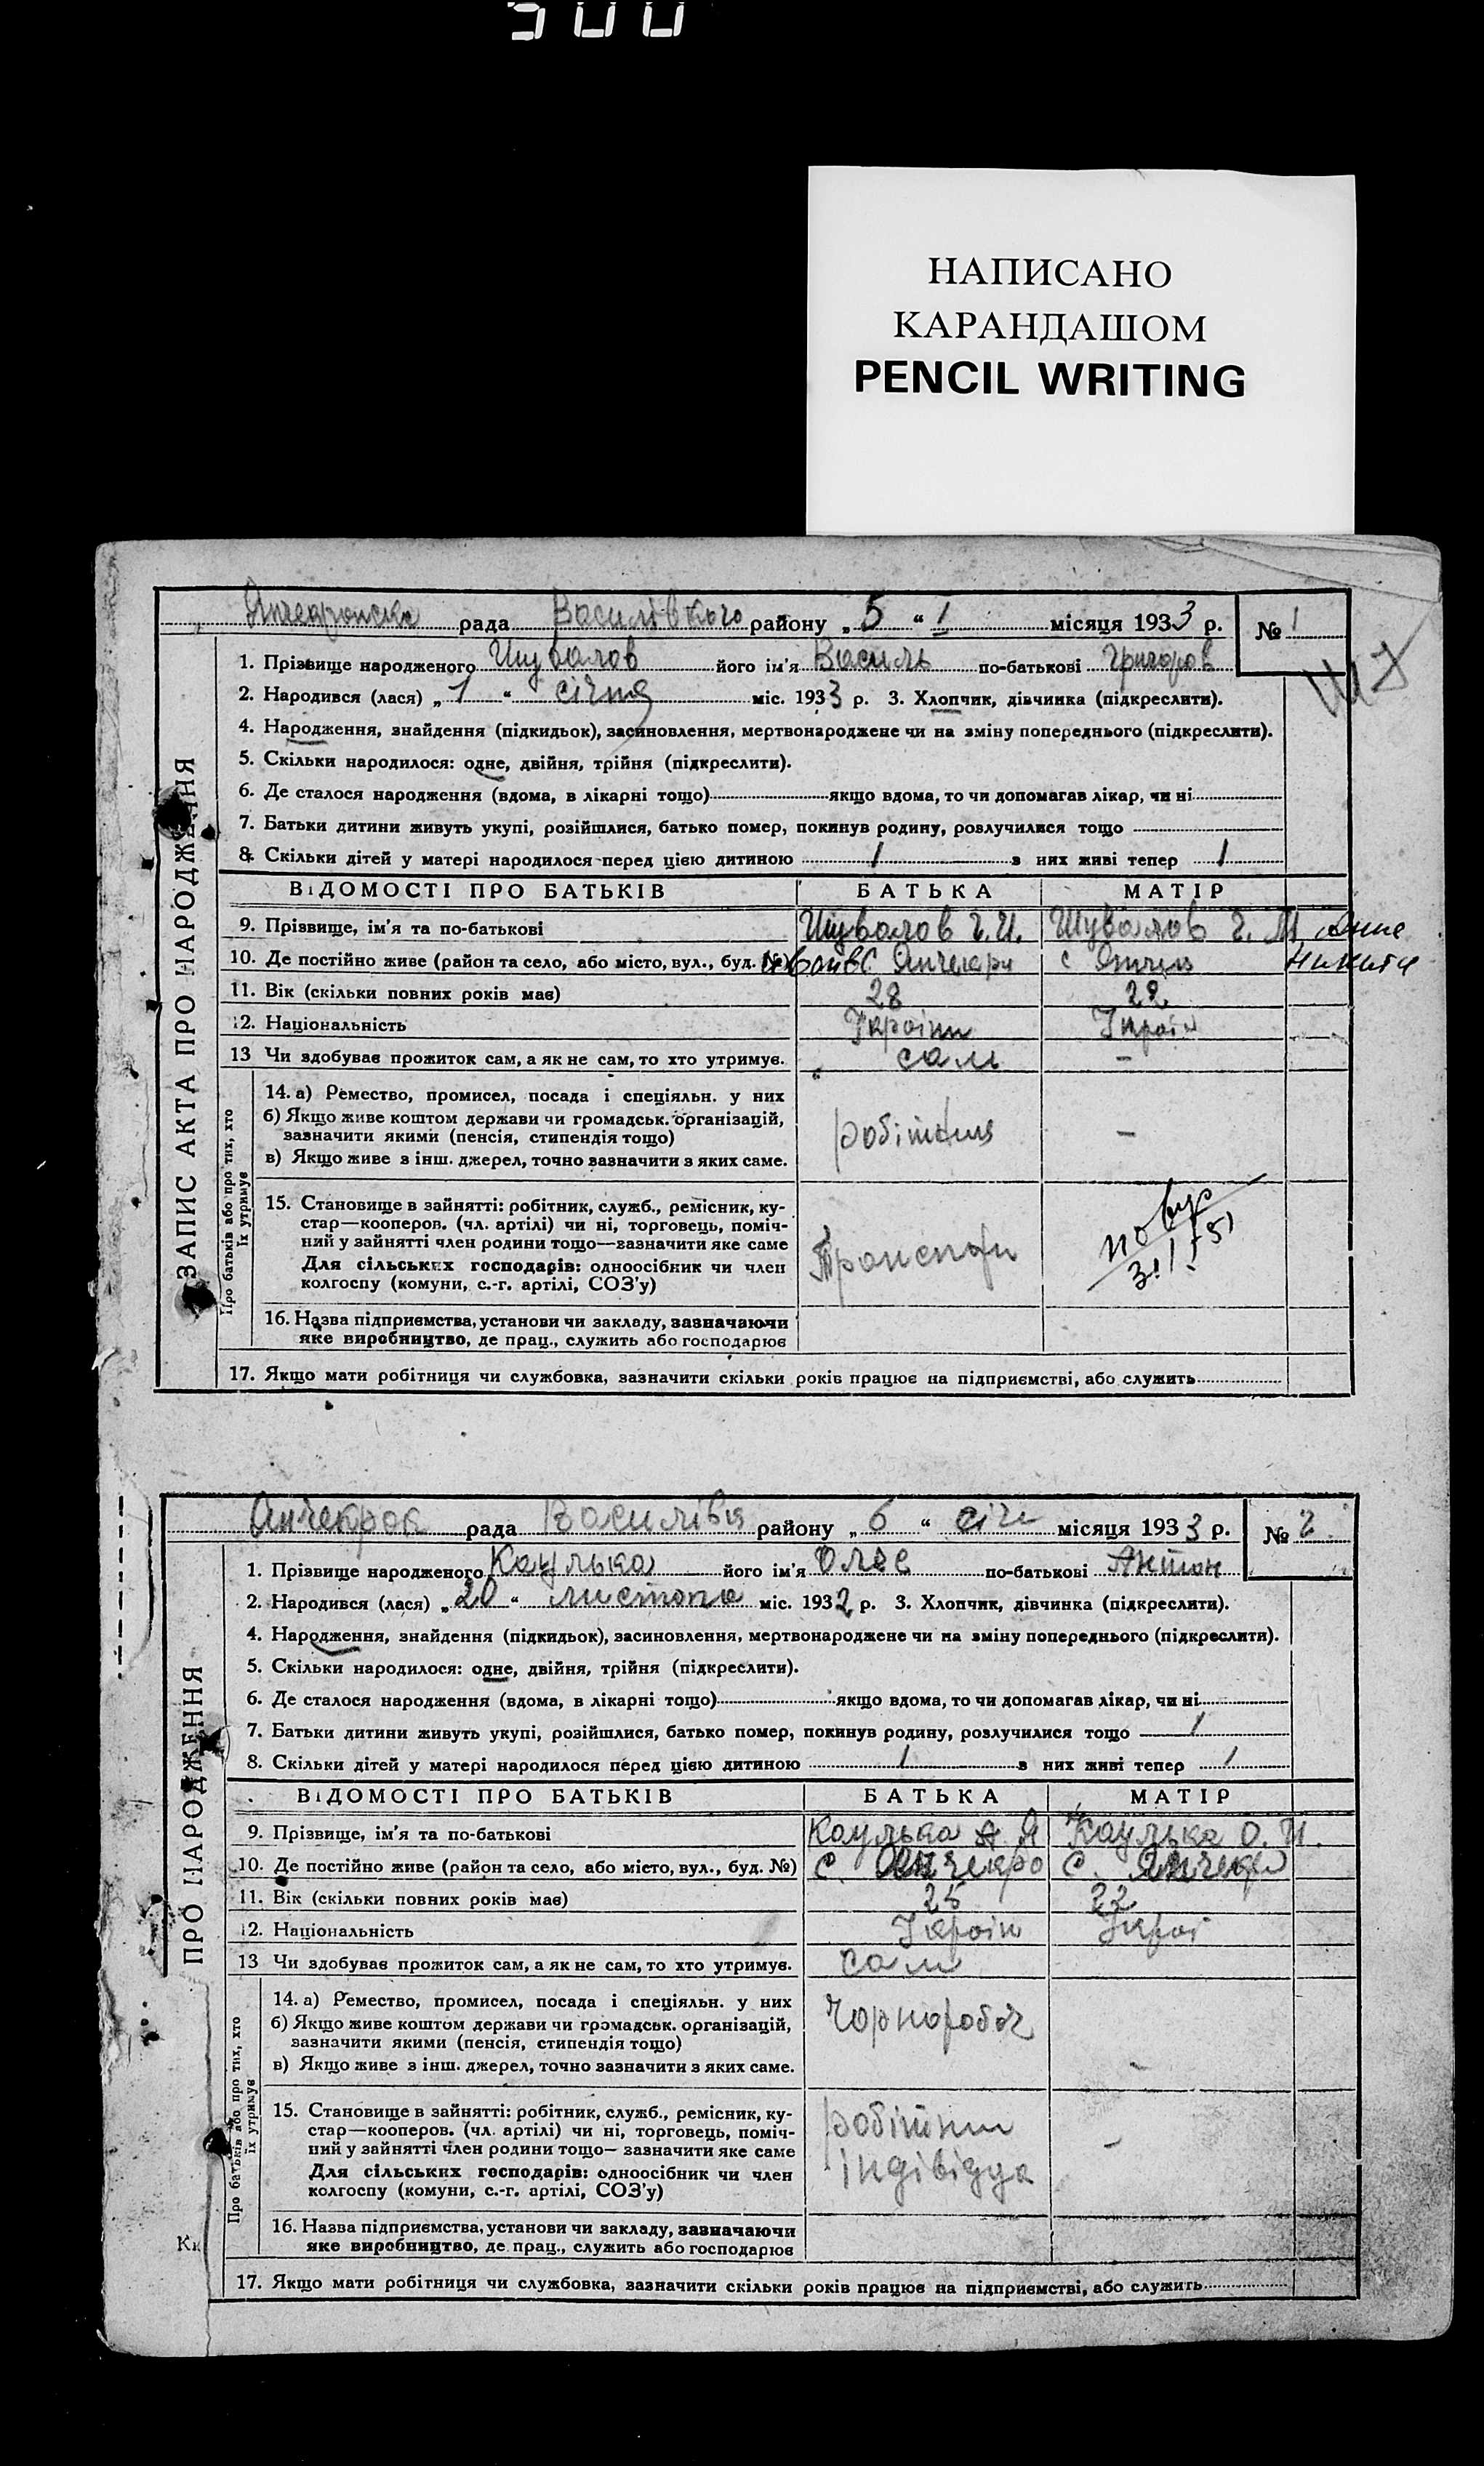 500
НАПИСАНО
КАРАНДАШОМ
PENCIL WRITING
рада Василівкого району „ 5 “ I місяця 1933 р. № 1
1. Прізвище народженого Шувалов його ім'я Василь по-батькові Григоров
2. Народився (лася) „ 1 “ січня міс. 1933 р. 3. Хлопчик, дівчинка (підкреслити).
4. Народження, знайдення (підкидьок), засиновлення, мертвонароджене чи на зміну попереднього (підкреслити).
5. Скільки народилося: одне, двійня, трійня (підкреслити).
6. Де сталося народження (вдома, в лікарні тощо) якщо вдома, то чи допомагав лікар, чи ні
7. Батьки дитини живуть укупі, розійшлися, батько помер, покинув родину, розлучилися тощо
8. Скільки дітей у матері народилося перед цією дитиною 1 з них живі тепер 1
ЗАПИС АКТА ПРО НАРОДЖЕННЯ
ВІДОМОСТІ ПРО БАТЬКІВ БАТЬКА МАТІР
9. Прізвище, ім'я та по-батькові Шувалов Г.И. Шувалов Г. М Анна
10. Де постійно живе (район та село, або місто, вул., буд. №) с Янчекр с Янчек Никити
11. Вік (скільки повних років має) 28 22
12. Національність Україн Україн
13 Чи здобуває прожиток сам, а як не сам, то хто утримує. сам –
Про батьків або про тих, хто
їх утримує
14. а) Ремество, промисел, посада і спеціяльн. у них
б) Якщо живе коштом держави чи громадськ. організацій,
зазначити якими (пенсія, стипендія тощо)
в) Якщо живе з інш. джерел, точно зазначити з яких саме.
–
15. Становище в зайнятті: робітник, служб., ремісник, ку-
стар—кооперов. (чл. артілі) чи ні, торговець, поміч-
ний у зайнятті член родини тощо—зазначити яке саме
Для сільських господарів: одноосібник чи член
колгоспу (комуни, с.-г. артілі, СОЗ'у)
Транспор
16. Назва підприємства, установи чи закладу, зазначаючи
яке виробництво, де прац., служить або господарює
17. Якщо мати робітниця чи службовка, зазначити скільки років працює на підприємстві, або служить
Янчекрок рада Василівк району „ 6 “ січ місяця 1933 р. № 2
1. Прізвище народженого Каулька його ім'я по-батькові Антон
2. Народився (лася) „ 20 “ листопа міс. 1932 р. 3. Хлопчик, дівчинка (підкреслити).
4. Народження, знайдення (підкидьок), засиновлення, мертвонароджене чи на зміну попереднього (підкреслити).
5. Скільки народилося: одне, двійня, трійня (підкреслити).
6. Де сталося народження (вдома, в лікарні тощо) якщо вдома, то чи допомагав лікар, чи ні
7. Батьки дитини живуть укупі, розійшлися, батько помер, покинув родину, розлучилися тощо 1
8. Скільки дітей у матері народилося перед цією дитиною 1 з них живі тепер 1
ПРО НАРОДЖЕННЯ
ВІДОМОСТІ ПРО БАТЬКІВ БАТЬКА МАТІР
9. Прізвище, ім'я та по-батькові Каулька А. Я Каулька О. И.
10. Де постійно живе (район та село, або місто, вул., буд. №) с. Янчекро с. Янчекр
11. Вік (скільки повних років має) 25 22
12. Національність Україн Украі
13 Чи здобуває прожиток сам, а як не сам, то хто утримує. сам
Про батьків або про тих, хто
їх утримує
14. а) Ремество, промисел, посада і спеціяльн. у них
б) Якщо живе коштом держави чи громадськ. організацій,
зазначити якими (пенсія, стипендія тощо)
в) Якщо живе з інш. джерел, точно зазначити з яких саме.
Чорнороб –
15. Становище в зайнятті: робітник, служб., ремісник, ку-
стар—кооперов. (чл. артілі) чи ні, торговець, поміч-
ний у зайнятті член родини тощо—зазначити яке саме
Для сільських господарів: одноосібник чи член
колгоспу (комуни, с.-г. артілі, СОЗ'у)
робітни –
індівідуа
16. Назва підприємства, установи чи закладу, зазначаючи
яке виробництво, де прац., служить або господарює
17. Якщо мати робітниця чи службовка, зазначити скільки років працює на підприємстві, або служить